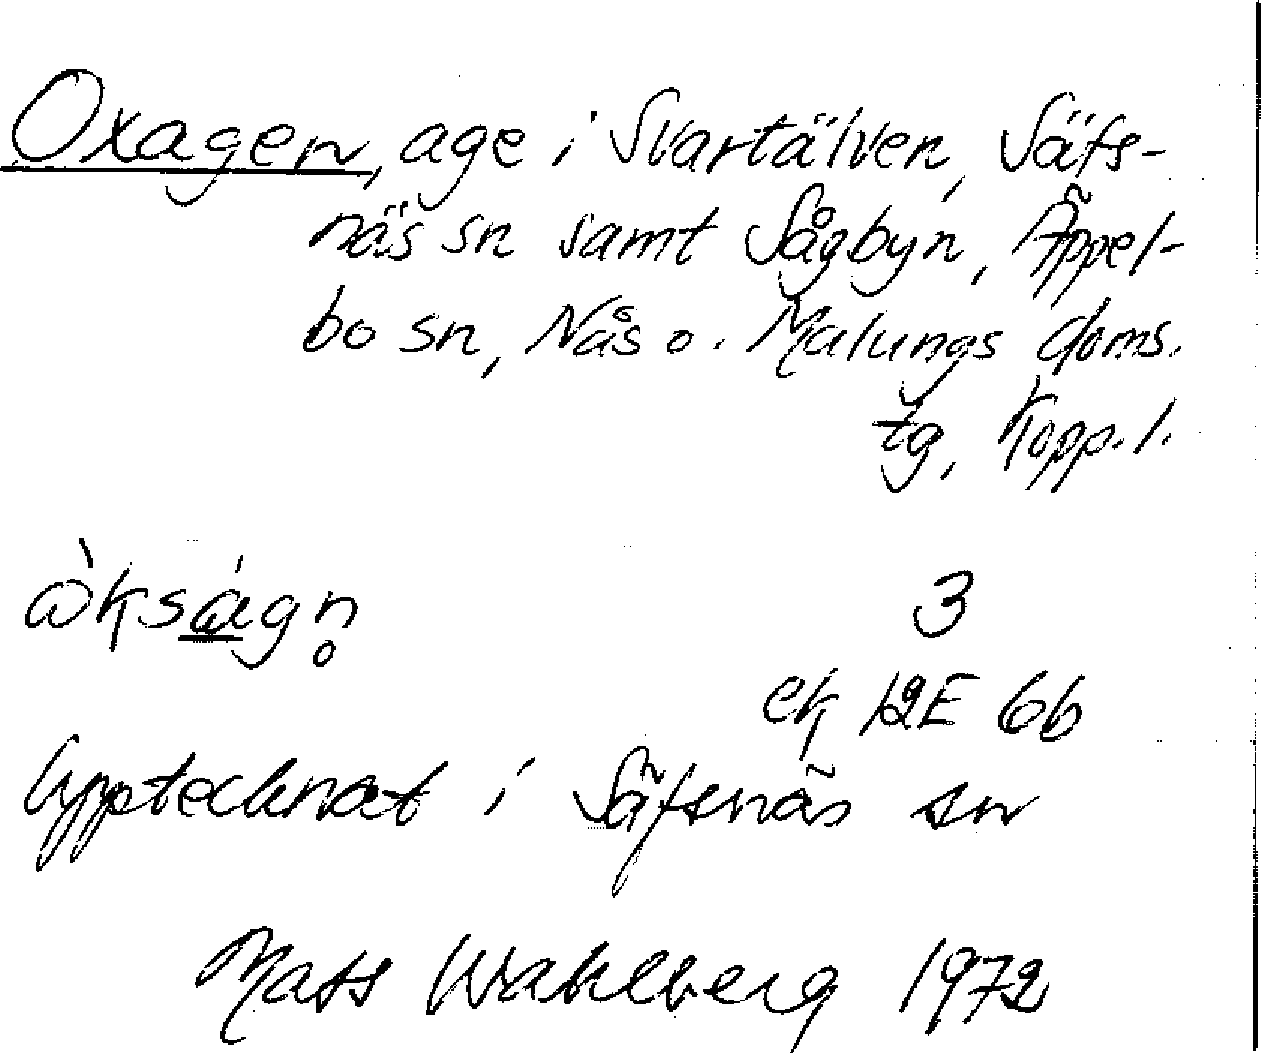 Oxagen, age i Svartälven, Säfs-
näs sn samt Sågbyn, Äppel-
bo sn, Nås o. Malungs doms.
tg, Kopp. l.
òksá̲gn̥ 3
ek 12E 6b
Upptecknat i Säfsnäs sn
Mats Wahlberg 1972